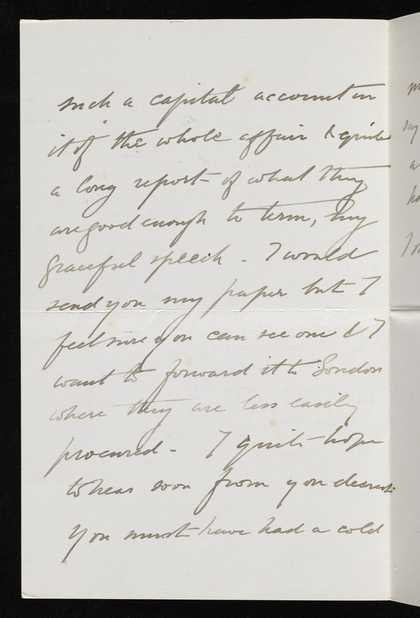 such a capital account in
it of the whole affair & quite
a long report of what they
are good enough to term, my
graceful speech - I would
send you my paper but I
feel sure you can see one & I
want to forward it to London
where they are less easily
procured - I quite hope
to hear soon from you dearest
You must have had a cold